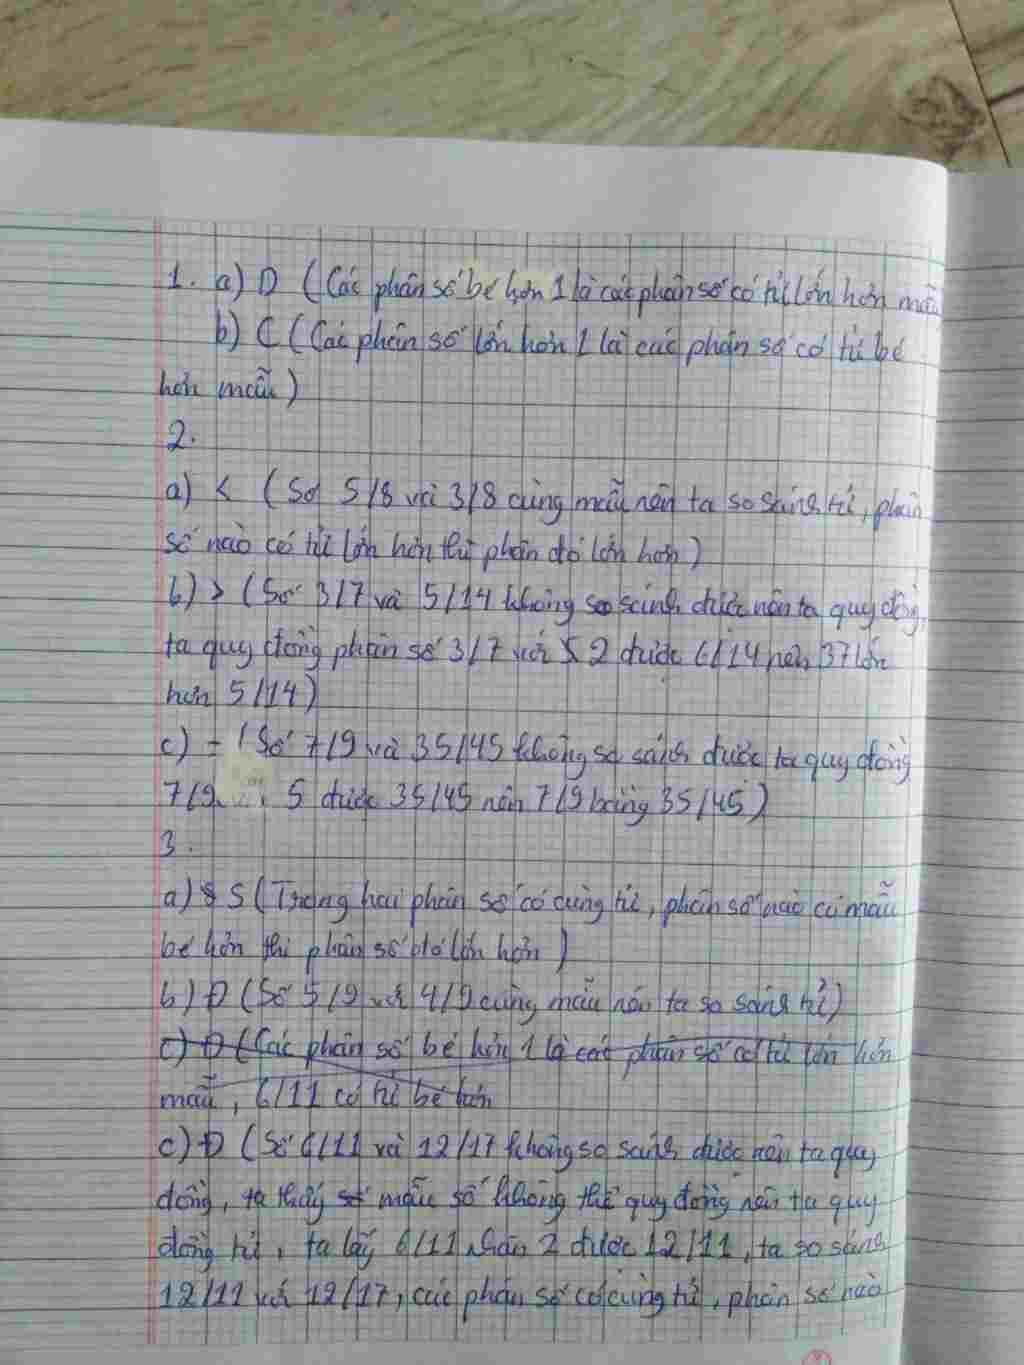 1. a) D (Các phân số bé hơn 1 là các phân số có tử lớn hơn mẫu
b) C (Các phân số lớn hơn 1 là các phân số có tử bé
hơn mẫu)
2.
a) < (Số 5/8 và 3/8 cùng mẫu nên ta so sánh tử, phân
số nào có tử lớn hơn thì phân đó lớn hơn)
b) > (Số 3/7 và 5/14 không so sánh được nên ta quy đồng,
ta quy đồng phân số 3/7 với 2 được 6/14 nên 37 lớn
hơn 5/14)
c) = (Số 7/9 và 35/45 không so sánh được ta quy đồng
7/9 5 được 35/45 nên 7/9 bằng 35/45)
3.
a) S (Trong hai phân số có cùng tử, phân số nào có mẫu
bé hơn thì phân số đó lớn hơn)
b) Đ (Số 5/9 và 4/9 cùng mẫu nên ta so sánh tử)
c) Đ (Các phân số bé hơn 1 là các phân số có tử lớn hơn
mẫu, 6/11 có tử bé hơn
c) Đ (Số 6/11 và 12/17 không so sánh được nên ta quy
đồng, ta thấy mẫu số không thể quy đồng nên ta quy
đồng tử, ta lấy 6/11 nhân 2 được 12/11, ta so sánh
12/11 với 12/17, các phân số có cùng tử, phân số nào